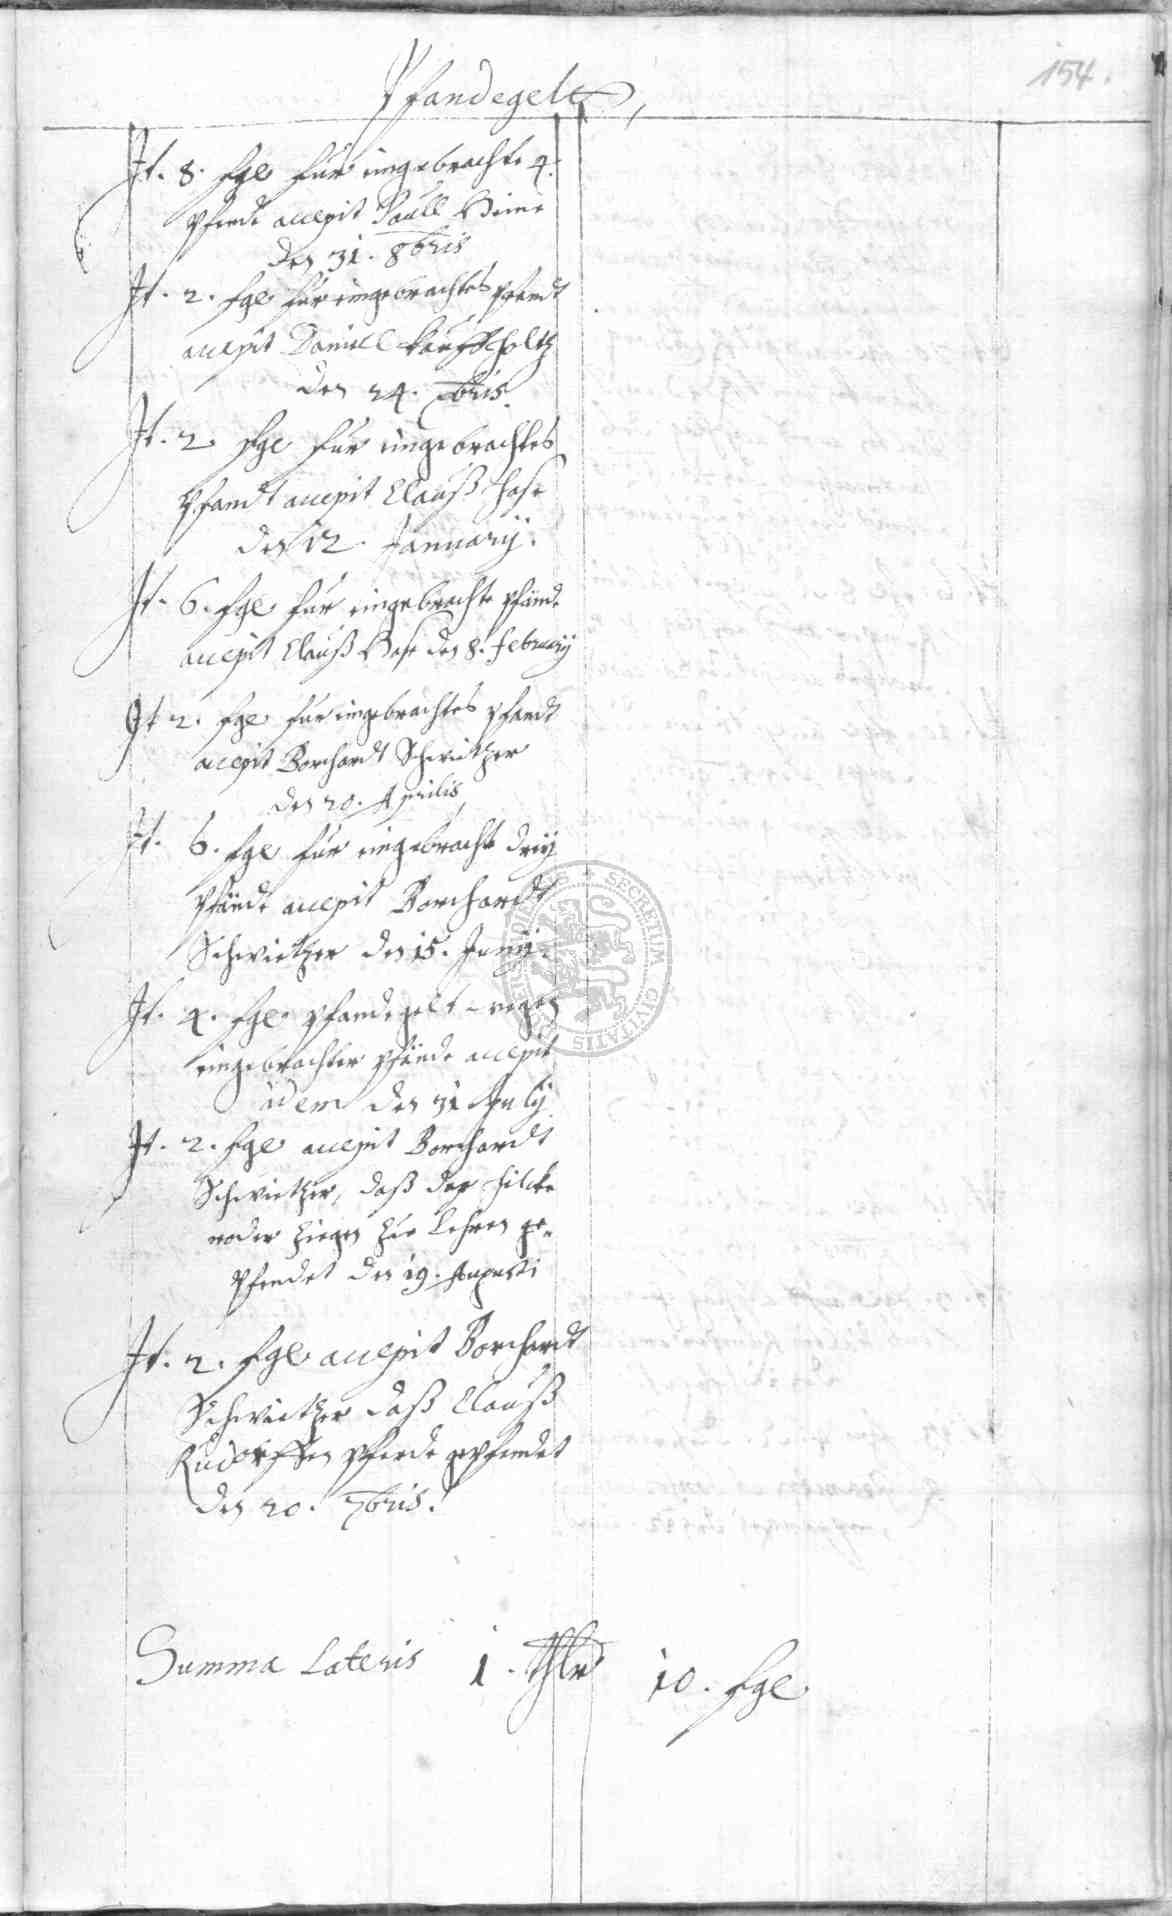 154.
Pfandegelt,
It. 8. sgl für eingebrachte 4.
Pfende accepit Paull Heine
den 31. 8bris
It. 2. sgl für eingebrachtes Pfandt
accepit Daniell Kauffholtz
den 24. bris.
It. 2 sgl für eingebrachtes
Pfandt accepit Clauß Hase
den 12. January.
It. 6. sgl für eingebrachte Pfände
accepit Clauß Hase den 8. february
It 2. sgl für eingebrachtes Pfandt
accepit Borchardt Schwietzer
den 20. Aprilis
It. 6. sgl für eingebrachte drey
Pfände accepit Borchardt
Schwietzer den 15. Juny.
It. 4. sgl Pfandegelt wegen
eingebrachter Pfände accepit
idem den 31 July
It. 2. sgl accepit Borchardt
Schwietzer, daß der
roder Ziegen Zue Lehren ge-
pfendet den 19. Augusti
It. 2. sgl accepit Borchardt
Schwietzer daß Clauß
Rudorffen Pferde gepfendet
den 20. 7bris.
Summa Lateris 1. thlr 10. sgl
SECRETUM CIVITATIS